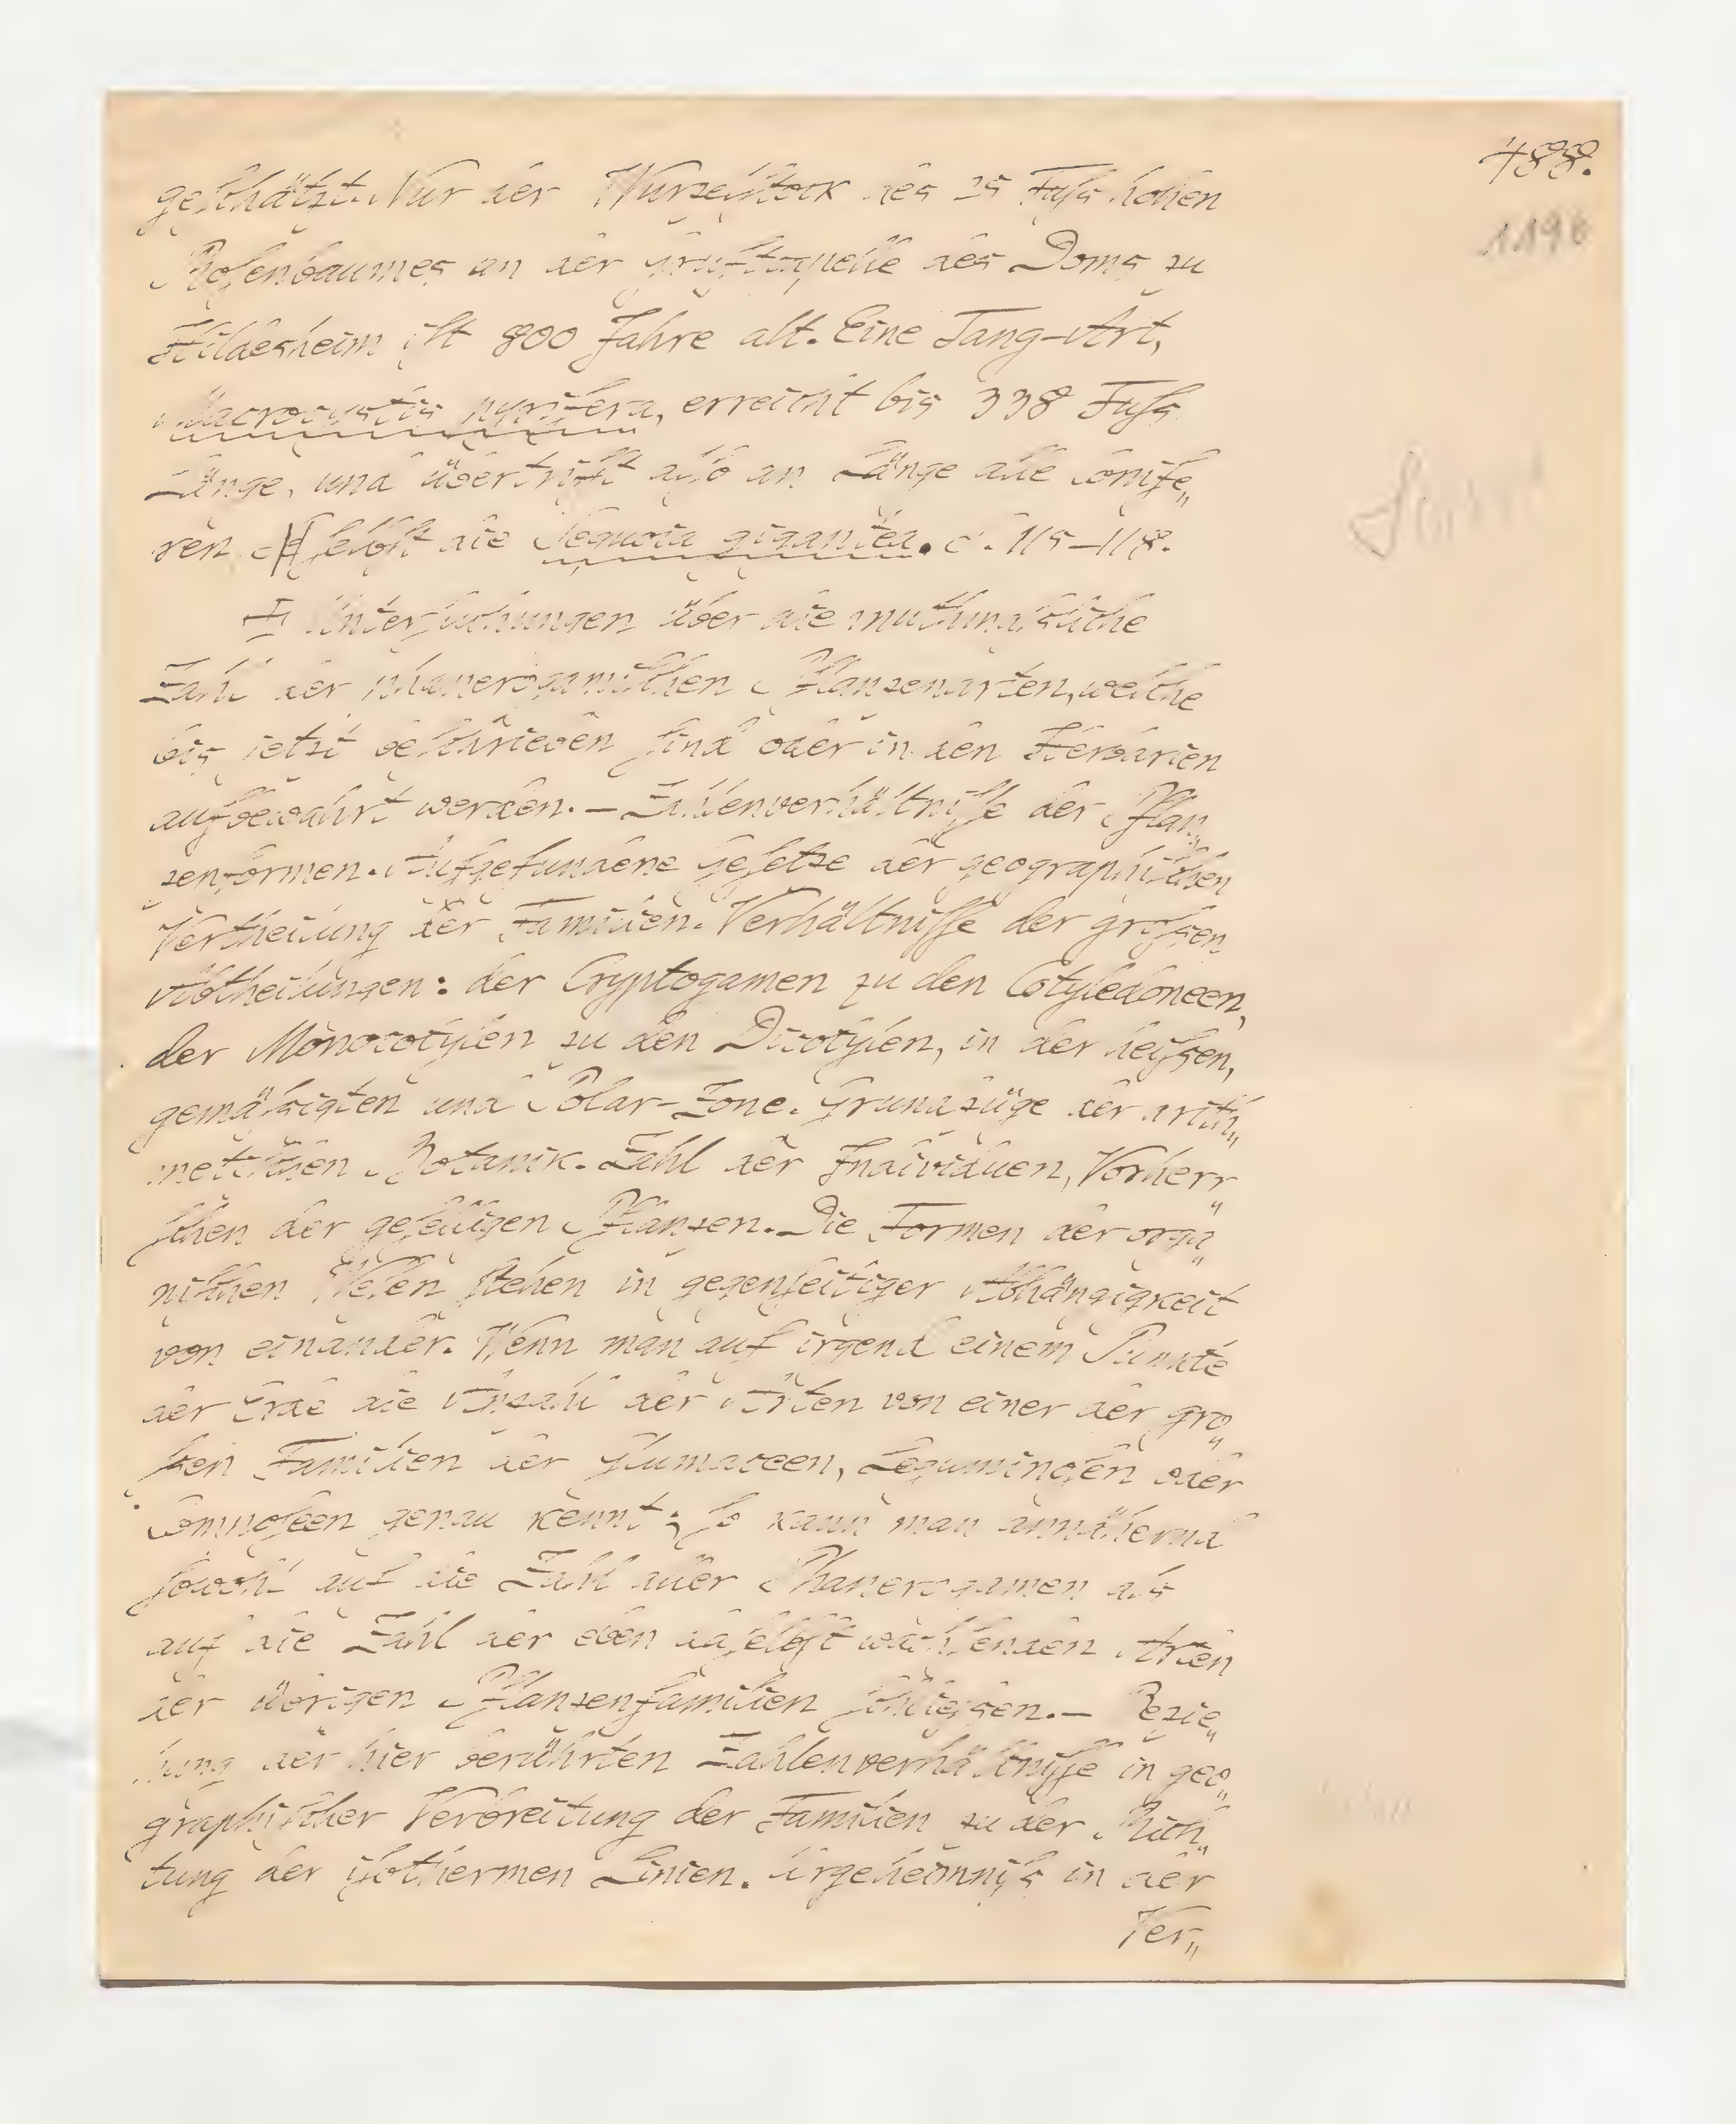 488.
1196
geschätzt. Nur der Wurzelstock des 25 Fuſs hohen
Rosenbaumes an der Gruftcapelle des Doms zu
Hildesheim ist 800 Jahre alt. Eine Tang-Art,
Macrocystis pyrifera, erreicht bis 338 Fuſs
Länge, und übertrifft also an Länge alle Conife„
ren selbst die Sequoia gigantea. S. 175–178.
Untersuchungen über die muthmaſsliche
Zahl der phanerogamischen Pflanzenarten, welche
bis jetzt beschrieben sind oder in den Herbarien
aufbewahrt werden. – Zahlenverhältnisse der Pflan„
zenformen. Aufgefundene Gesetze der geographischen
Vertheilung der Familien. Verhältnisse der groſsen
Abtheilungen: der Cryptogamen zu den Cotyledoneen,
der Monocotylen zu den Dicotylen, in der heiſsen,
gemäſsigten und Polar-Zone. Grundzüge der arith„
metischen Botanik. Zahl der Individuen, Vorherr„
schen der geselligen Pflanzen. Die Formen der orga„
nischen Wesen stehen in gegenseitiger Abhängigkeit
von einander. Wenn man auf irgend einem Punkte
der Erde die Anzahl der Arten von einer der gro„
ſsen Familien der Glumaceen, Leguminosen oder
Composeen genau kennt; so kann man annähernd
sowohl auf die Zahl aller Phanerogamen als
auf die Zahl der eben daselbst wachsenden Arten
der übrigen Pflanzenfamilien schlieſsen. – Bezie„
hung der hier berührten Zahlenverhältnisse in geo„
graphischer Verbreitung der Familien zu der Rich„
tung der isothermen Linien. Urgeheimniſs in der
Ver„